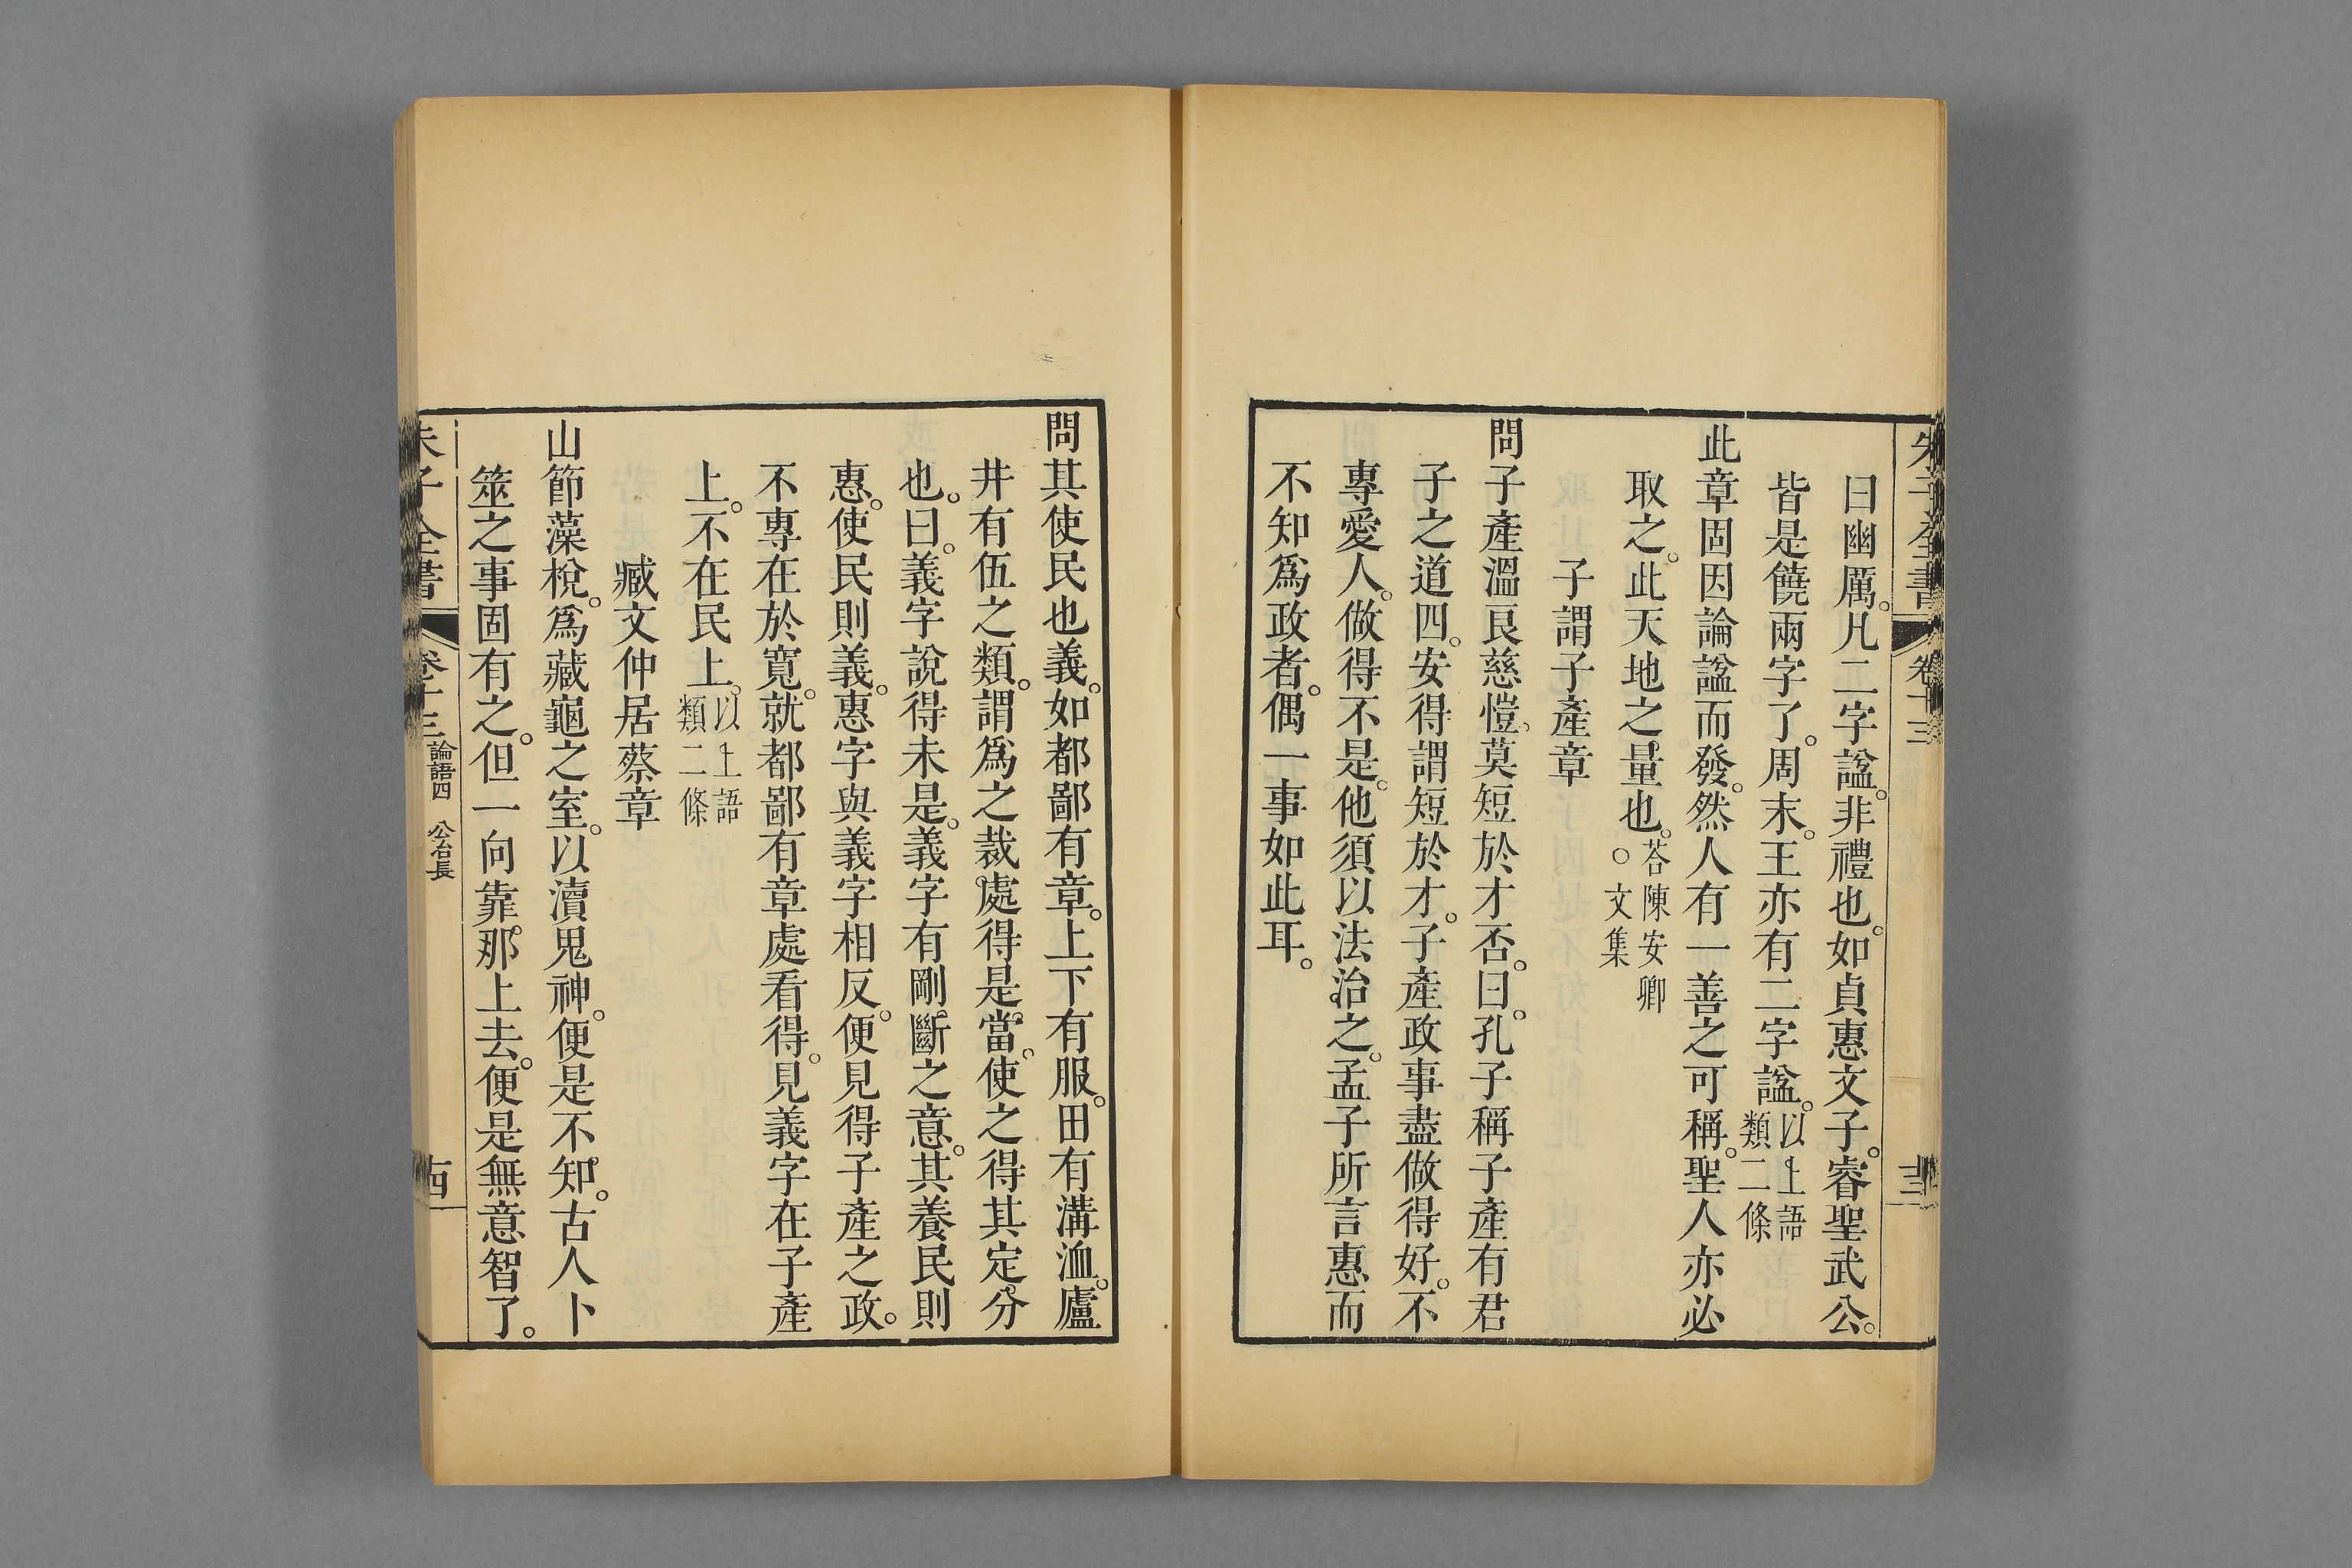 朱子全書　卷十三　十三
曰幽厲。凡二字諡。非禮也。如貞惠文子。睿聖武公。
皆是饒兩字了。周末。王亦有二字諡。以上語類二條
此章固因論諡而發。然人有一善之可稱。聖人亦必
取之。此天地之量也。答陳安卿。文集
子謂子產章
問子產溫良慈愷。莫短於才否。曰。孔子稱子產有君
子之道四。安得謂短於才。子產政事盡做得好。不
專愛人。做得不是。他須以法治之。孟子所言惠而
不知爲政者。偶一事如此耳。
問其使民也義。如都鄙有章。上下有服。田有溝洫。廬
井有伍之類。謂爲之裁處得是當。使之得其定分
也。曰。義字說得未是。義字有剛斷之意。其養民則
惠。使民則義。惠字與義字相反。便見得子產之政。
不專在於寬。就都鄙有章處看得。見義字在子產
上。不在民上。以上語類二條
臧文仲居蔡章
山節藻梲。爲藏龜之室。以瀆鬼神。便是不知。古人卜
筮之事固有之。但一向靠那上去。便是無意智了。
朱子全書　卷十三　論語四　公冶長　十四